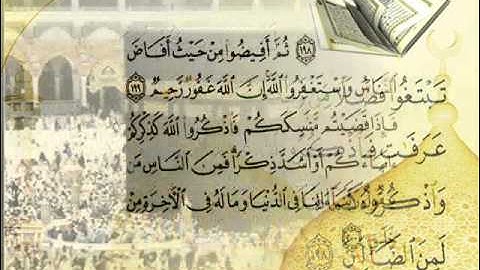 ١٩٨ ثُمَّ أَفِيضُوا مِنْ حَيْثُ أَفَاضَ
تَبْتَغُوا النَّاسُ وَاسْتَغْفِرُوا اللَّهَ إِنَّ اللَّهَ غَفُورٌ رَّحِيمٌ ١٩٩
فَإِذَا قَضَيْتُم مَّنَاسِكَكُمْ فَاذْكُرُوا اللَّهَ كَذِكْرِكُمْ
عَرَفَاتٍ أَوْ أَشَدَّ ذِكْرًا فَمِنَ النَّاسِ مَن
وَاذْكُرُوهُ فِي الدُّنْيَا وَمَا لَهُ فِي الْآخِرَةِ مِنْ
لَمِنَ ١٩٨